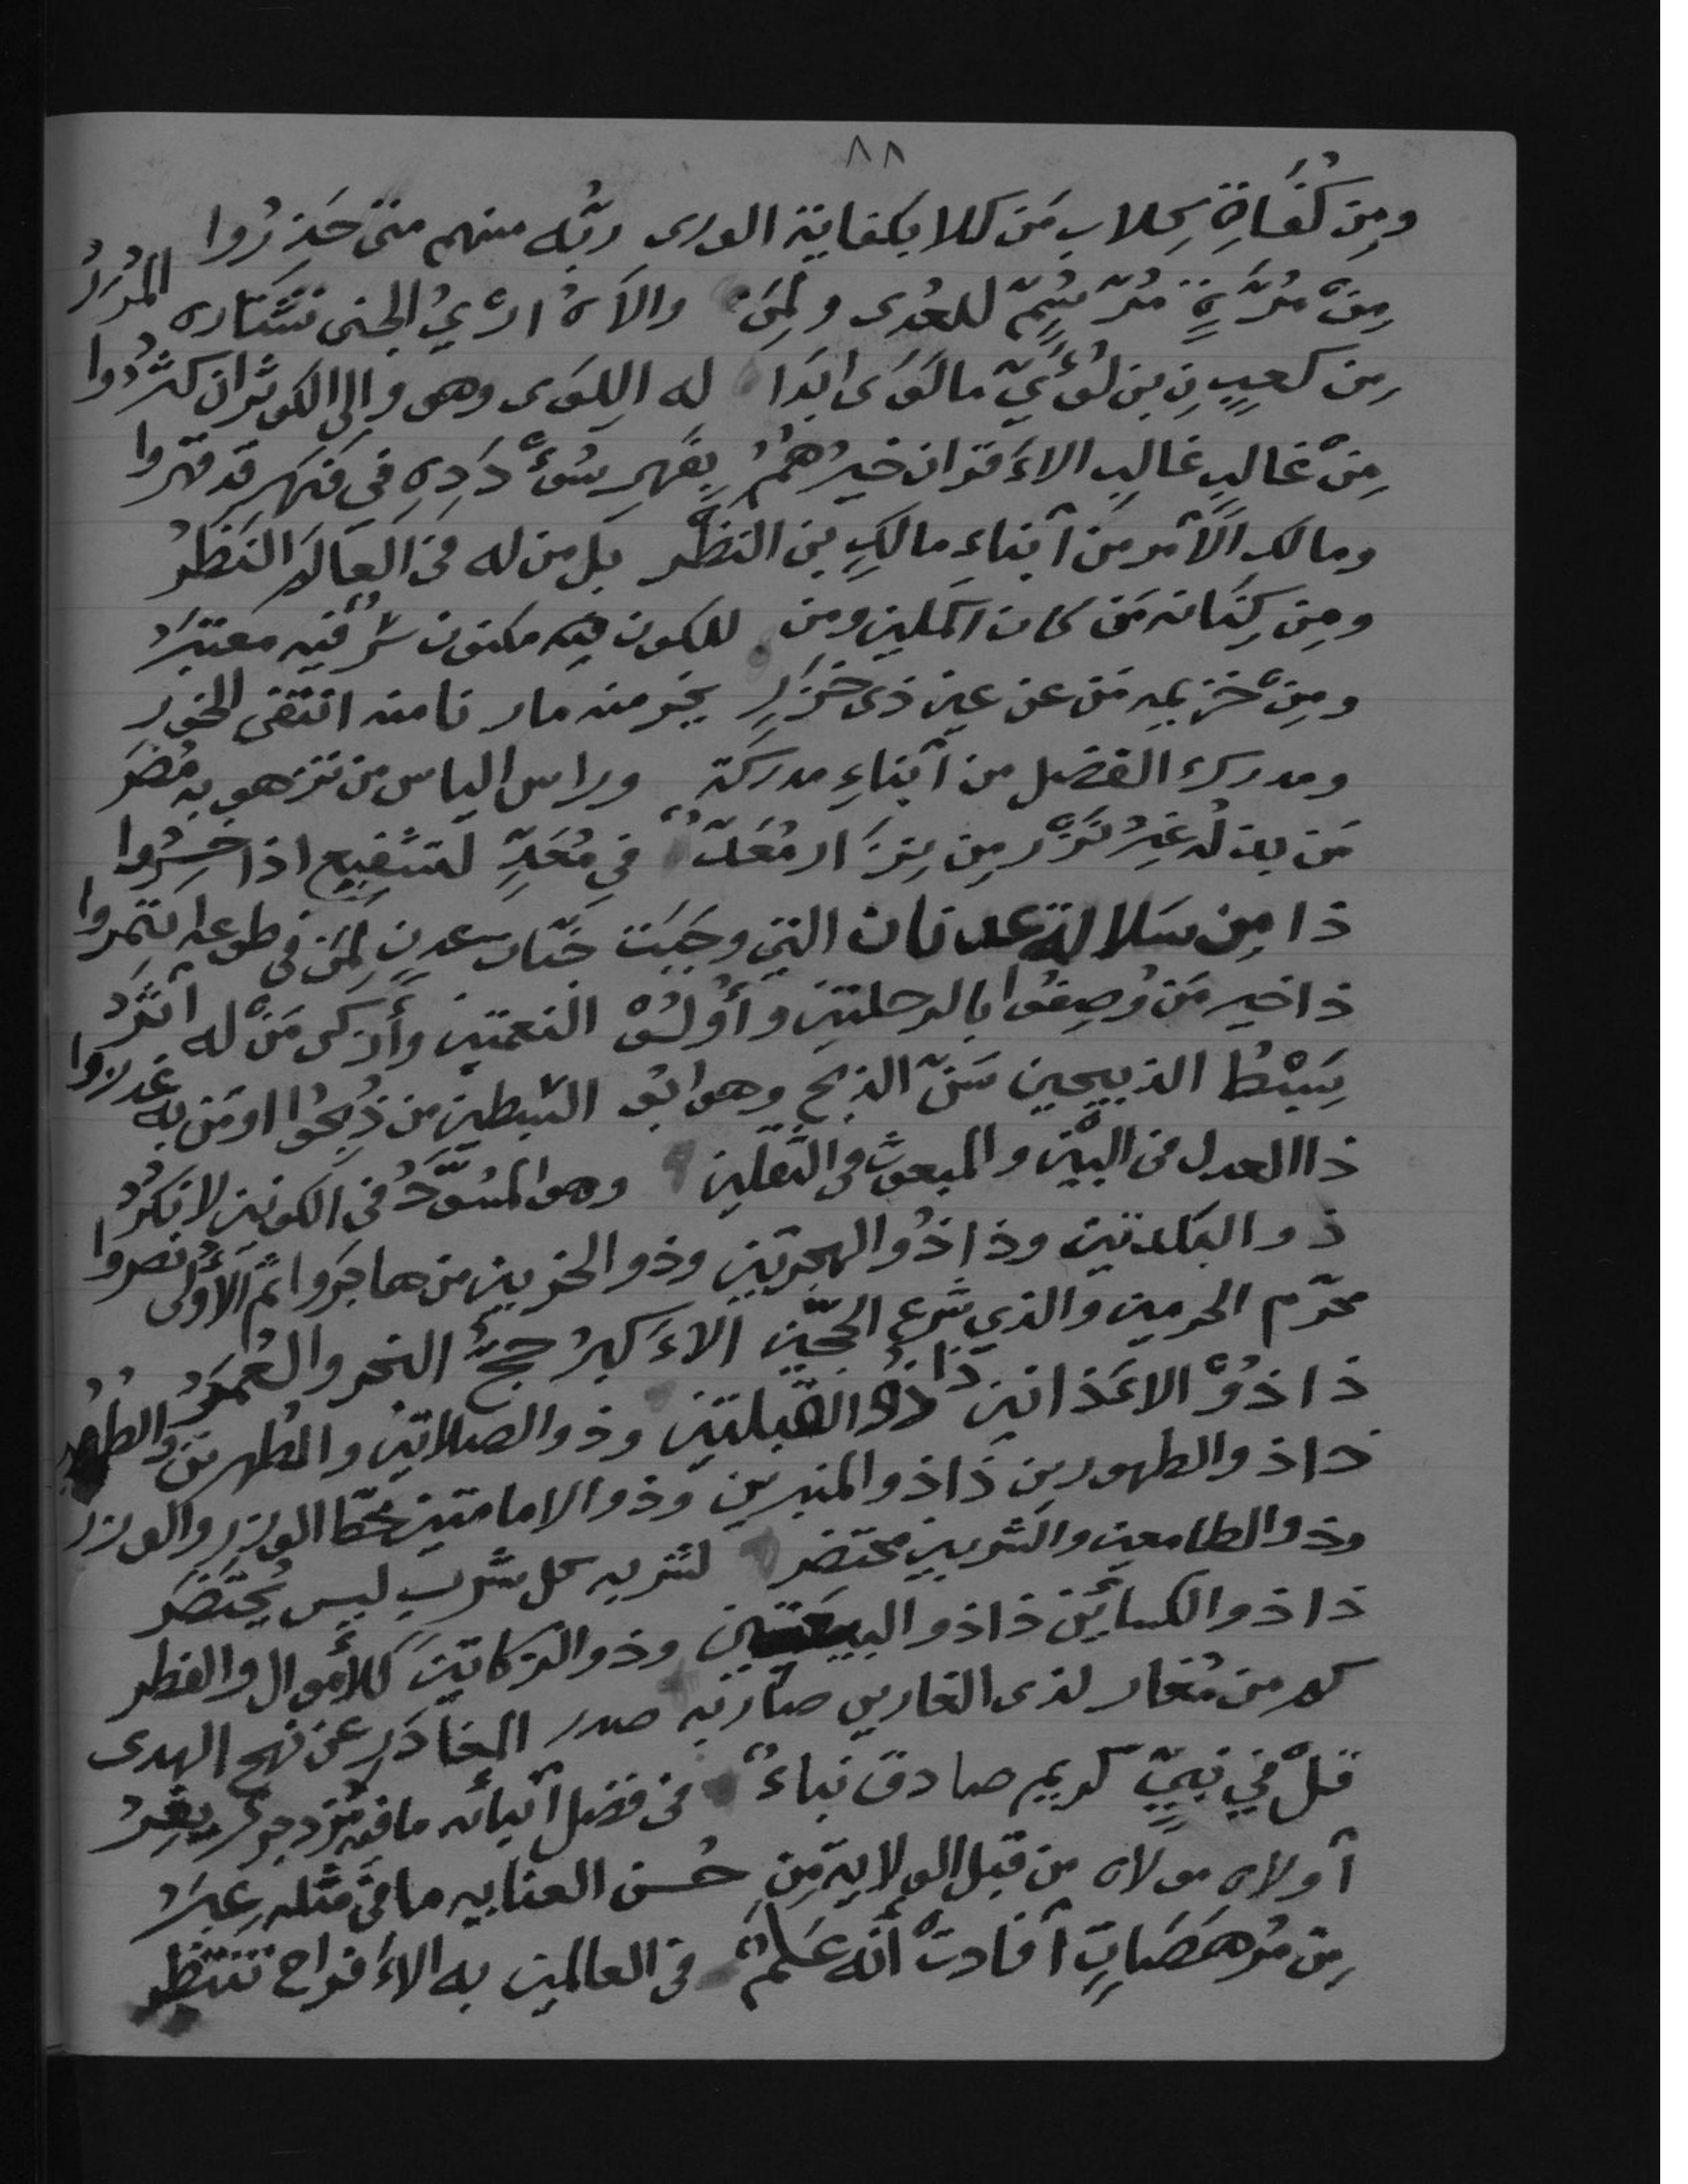 ٨٨
ومِن كُفَاةِ كِلاب مَن كلا بكفاية الورى ربُّه منهم متى حَذِرُوا
مِنْ مُرَّةٍ مُرّ سُمّ للعُدى ولِمَن والاهُ ارْيُ الجنى تشتاره المُرَرُ
مِن كعبٍ نِ بن لُؤَيّ ما لَوَى ابَدَا له اللِوَى وهو والى الكوثر ان كثرُوا
مِنْ غالبٍ غالبِ الاَقران خيرُهُمُ بِفَهرِ سُؤْدَدِهِ في فهرٍ قد قهروا
ومالك الاَمر من اَبناء مالكِ بن النضْر بل من له في العالَم النَضْرُ
ومِن كِنَانه مَن كان اكملين ومن للكون فيه مكنون سرٌّ فيه معتبَرُ
ومِنْ خزيمه مَن عن عين ذى خَزَرٍ بخر منه مار نا منه انتفى الخور
ومدرك الفضل من اَبناءِ مدركة وراس الياس من تزهو به مُضَرُ
مَن بذله غيرُ نَزْر مِن نِزَار مُعَدٌّ في مُعَدٍّ لتشفيع اذا حُشِرُوا
ذا مِن سَلالة عدنان التي وجبَت جنّات عدنٍ لِمَن في طوعها ائتمروا
ذا خير مَن وُصِفُوا بالرحلتين وأُولُوْ النعمتين وأَزكى مَنْ له اَثَرُ
سِبْطُ الذبيحين سَنّ الذبح وهو ابو السّبطين من ذُبِحُوْا او مَن به غدروا
ذا العدل في البيْن والمبعوث في الثقلين وهو المُسَوَّدُ في الكونين لا نكرُ
ذو البلدتين وذا ذُو الهجرتين وذو الحزبين من هاجَروا ثم الاُولى نصروا
محرّم الحرمين والذي شرع الحجّين الاَكبرُ حجُّ النحر والعُمَرُ
ذا ذُوْ الاَذانين ذا ذُو القبلتين وذو الصلاتين والطهرين والطُهُر
ذا ذو الطهورين ذا ذو المنبرين وذو الامامتين مَحَطّا الوزر والوزر
وذو الطامعين والشربين محتضر لشربه كل شربٍ ليس يُحتَضَر
ذا ذو الكسائَين ذا ذو البيعتين وذو الزكاتين للاَموال والفطر
كم من مُغار لذى الغارين صارَ به صدر المغادَرِ عن نهج الهدى
قلْ في نبيّ كريم صادق نباءٌ في فضل اَنبائه ما فيه مُزدجرُ
اَولاه مولاه من قبل الولاية مِن حُسن العنايه ما في مثله عِبَرُ
مِن مُرهصَاتٍ اَفادتْ اَنّه عَلَمٌ في العالمين به الاَفراح تنتظر